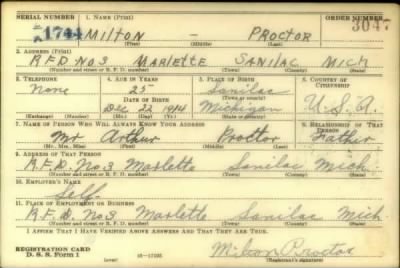 SERIAL NUMBER 1. NAME (Print) ORDER NUMBER
1744 MILTON — PROCTOR 3047
(First) (Middle) (Last)
2. ADDRESS (Print)
R.F.D. NO 3 MARLETTE SANILAC MICH
(Number and street or R. F. D. number) (Town) (County) (State)
3. TELEPHONE 4. AGE IN YEARS 5. PLACE OF BIRTH 6. COUNTRY OF CITIZENSHIP
None 25 Sanilac
DATE OF BIRTH (Town or county)
Dec 22 1914 Michigan U.S.A.
(Exchange) (Number) (Mo.) (Day) (Yr.) (State or country)
7. NAME OF PERSON WHO WILL ALWAYS KNOW YOUR ADDRESS 8. RELATIONSHIP OF THAT PERSON
Mr. Arthur Proctor Father
(Mr., Mrs., Miss) (First) (Middle) (Last)
9. ADDRESS OF THAT PERSON
R.F.D. No. 3 Marlette Sanilac Mich.
(Number and street or R. F. D. number) (Town) (County) (State)
10. EMPLOYER'S NAME
Self
11. PLACE OF EMPLOYMENT OR BUSINESS
R.F.D. No 3 Marlette Sanilac Mich.
(Number and street or R. F. D. number) (Town) (County) (State)
I AFFIRM THAT I HAVE VERIFIED ABOVE ANSWERS AND THAT THEY ARE TRUE.
REGISTRATION CARD Milton Proctor
D. S. S. Form 1 (over) (Registrant's signature)